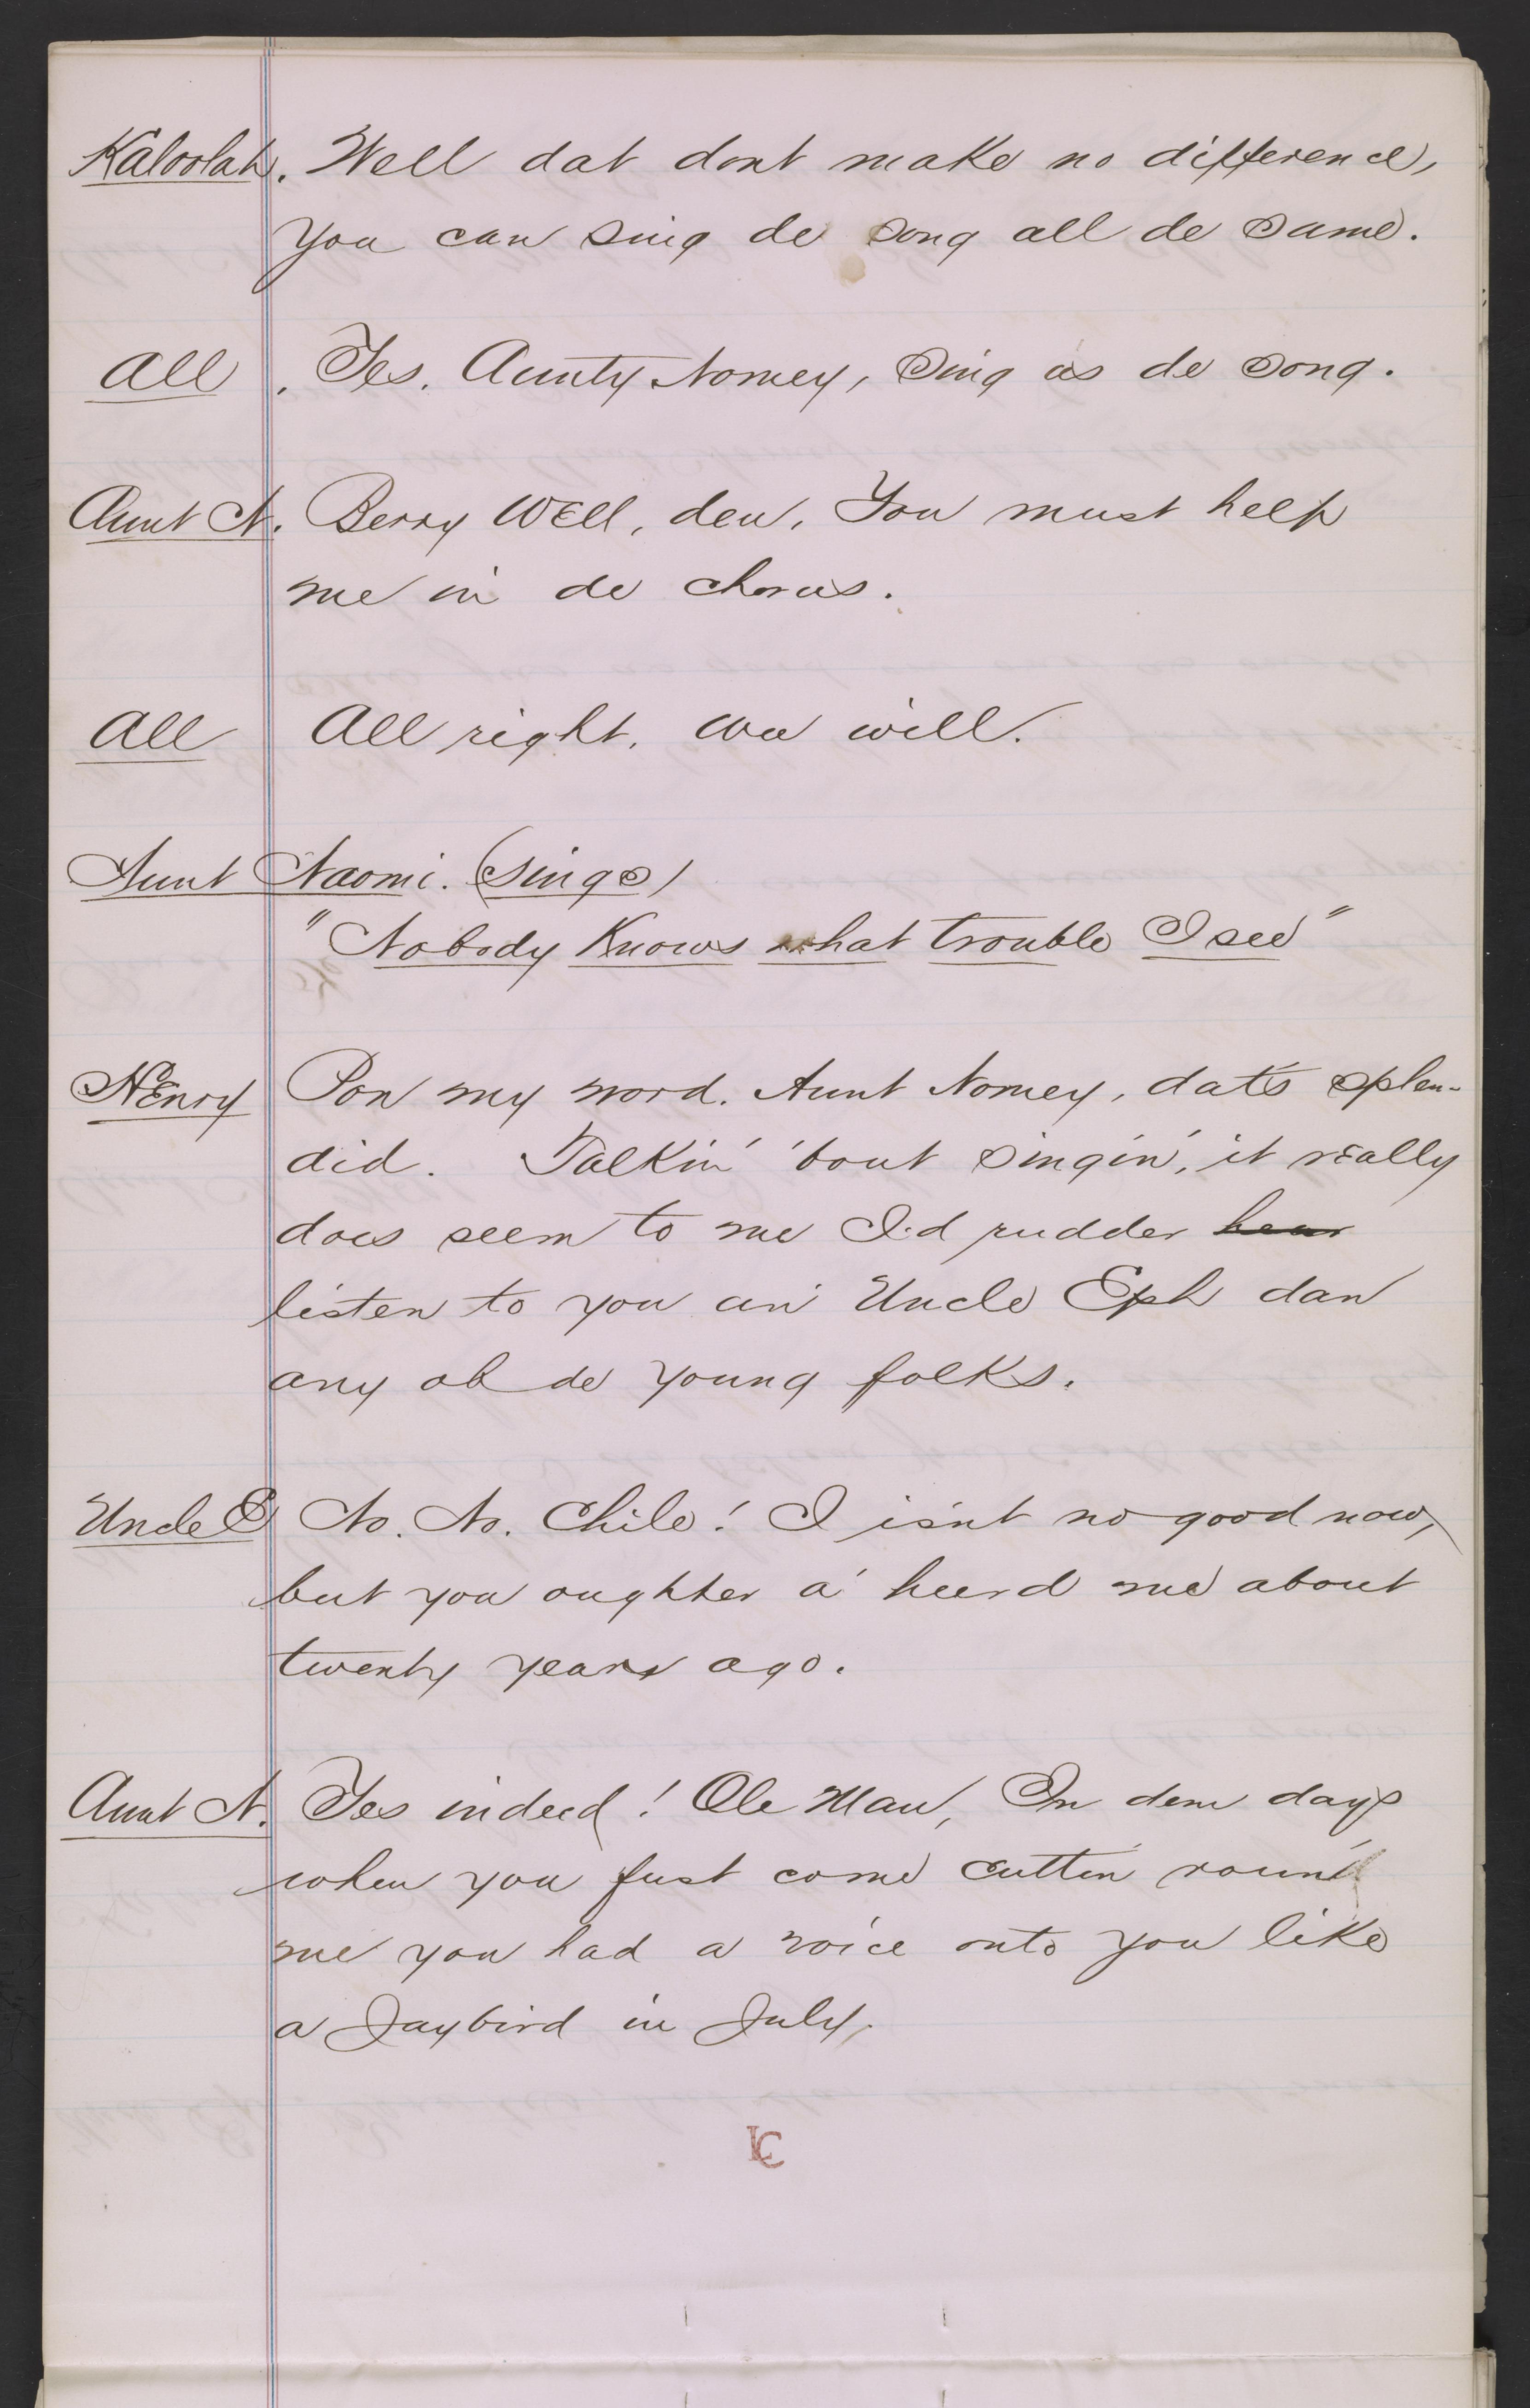 Kaloolah. Well dat dont make no difference,
you can sing de song all de same.
All. Yes. Aunty Nomey, sing us de song.
Aunt N. Berry Well, den. You must help
me in de chorus.
All All right. we will.
Aunt Naomi. (sings)
"Nobody Knows what trouble I see"
Henry Pon my word. Aunt Nomey, dat's splen-
did. Talkin' 'bout singin', it really
does seem to me I'd rudder hear
listen to you an' Uncle Eph dan
any ob de young folks.
Uncle E No. No. Chile! I isn't no good now,
but you oughter a' heerd me about
twenty years ago.
Aunt N. Yes indeed! Ole Man, In dem days
when you fust come cuttin' roun'
me you had a voice onto you like
a Jaybird in July.
LC